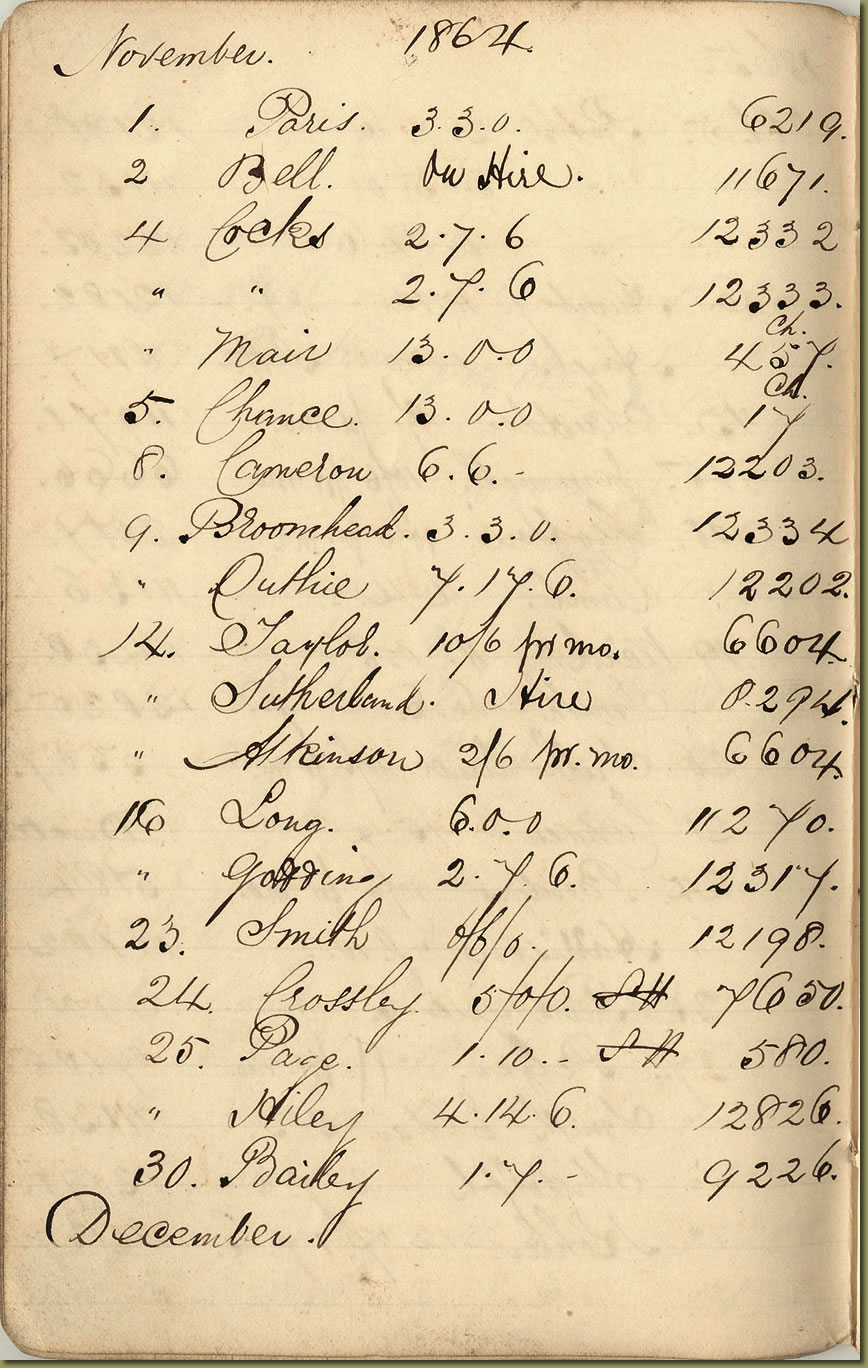 November. 1864.
1. Paris. 3.3.0. 6219.
2 Bell. On Hire. 11671.
4 Cocks 2.7.6 12332
" " 2.7.6 12333.
" Mair 13.0.0 Ch. 457.
5. Chance. 13.0.0 Ch. 17
8. Cameron 6.6.- 12203.
9. Broomhead. 3.3.0. 12334
" Duthie 7.17.6. 12202.
14. Taylor. 10/6 pr mo. 6604.
" Sutherland. Hire 8294.
" Atkinson 2/6 pr. mo. 6604.
16 Long. 6.0.0 11270.
" Godding 2.7.6. 12317.
23. Smith 6/6/0. 12198.
24. Crossley 5/0/0. SH 7650.
25. Page. 1.10.- SH 580.
" Hiley 4.14.6. 12826.
30. Bailey 1.7.- 9226.
December.